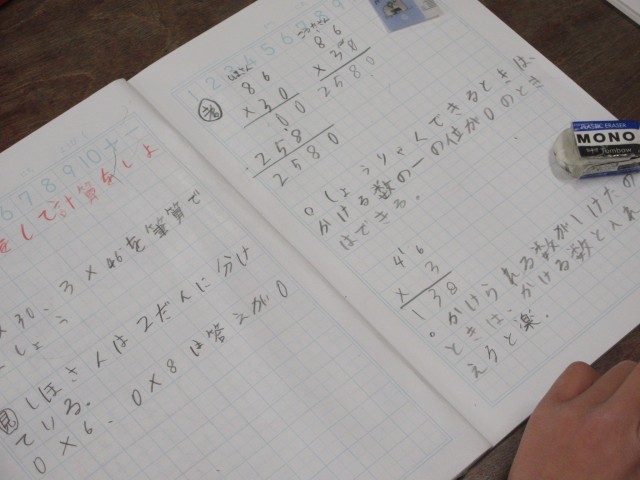 6 7 8 9 10
をして計算をしよ
×30、3×46を筆算で
しょう
見 しほさんは2だんに分け
ている。
0×6、0×8は答えが0
1 2 3 4 5 6 7 8 9
考
しほさん
86
×30
00
258
2580
こうじさん
86
×30
2580
。しょうりゃくできるときは、
かける数の一の位が0のとき
はできる。
46
× 3
138
。かけられる数が1けたの
ときは、かける数と入れ
えると楽.
PLASTIC ERASER
MONO
Tombow